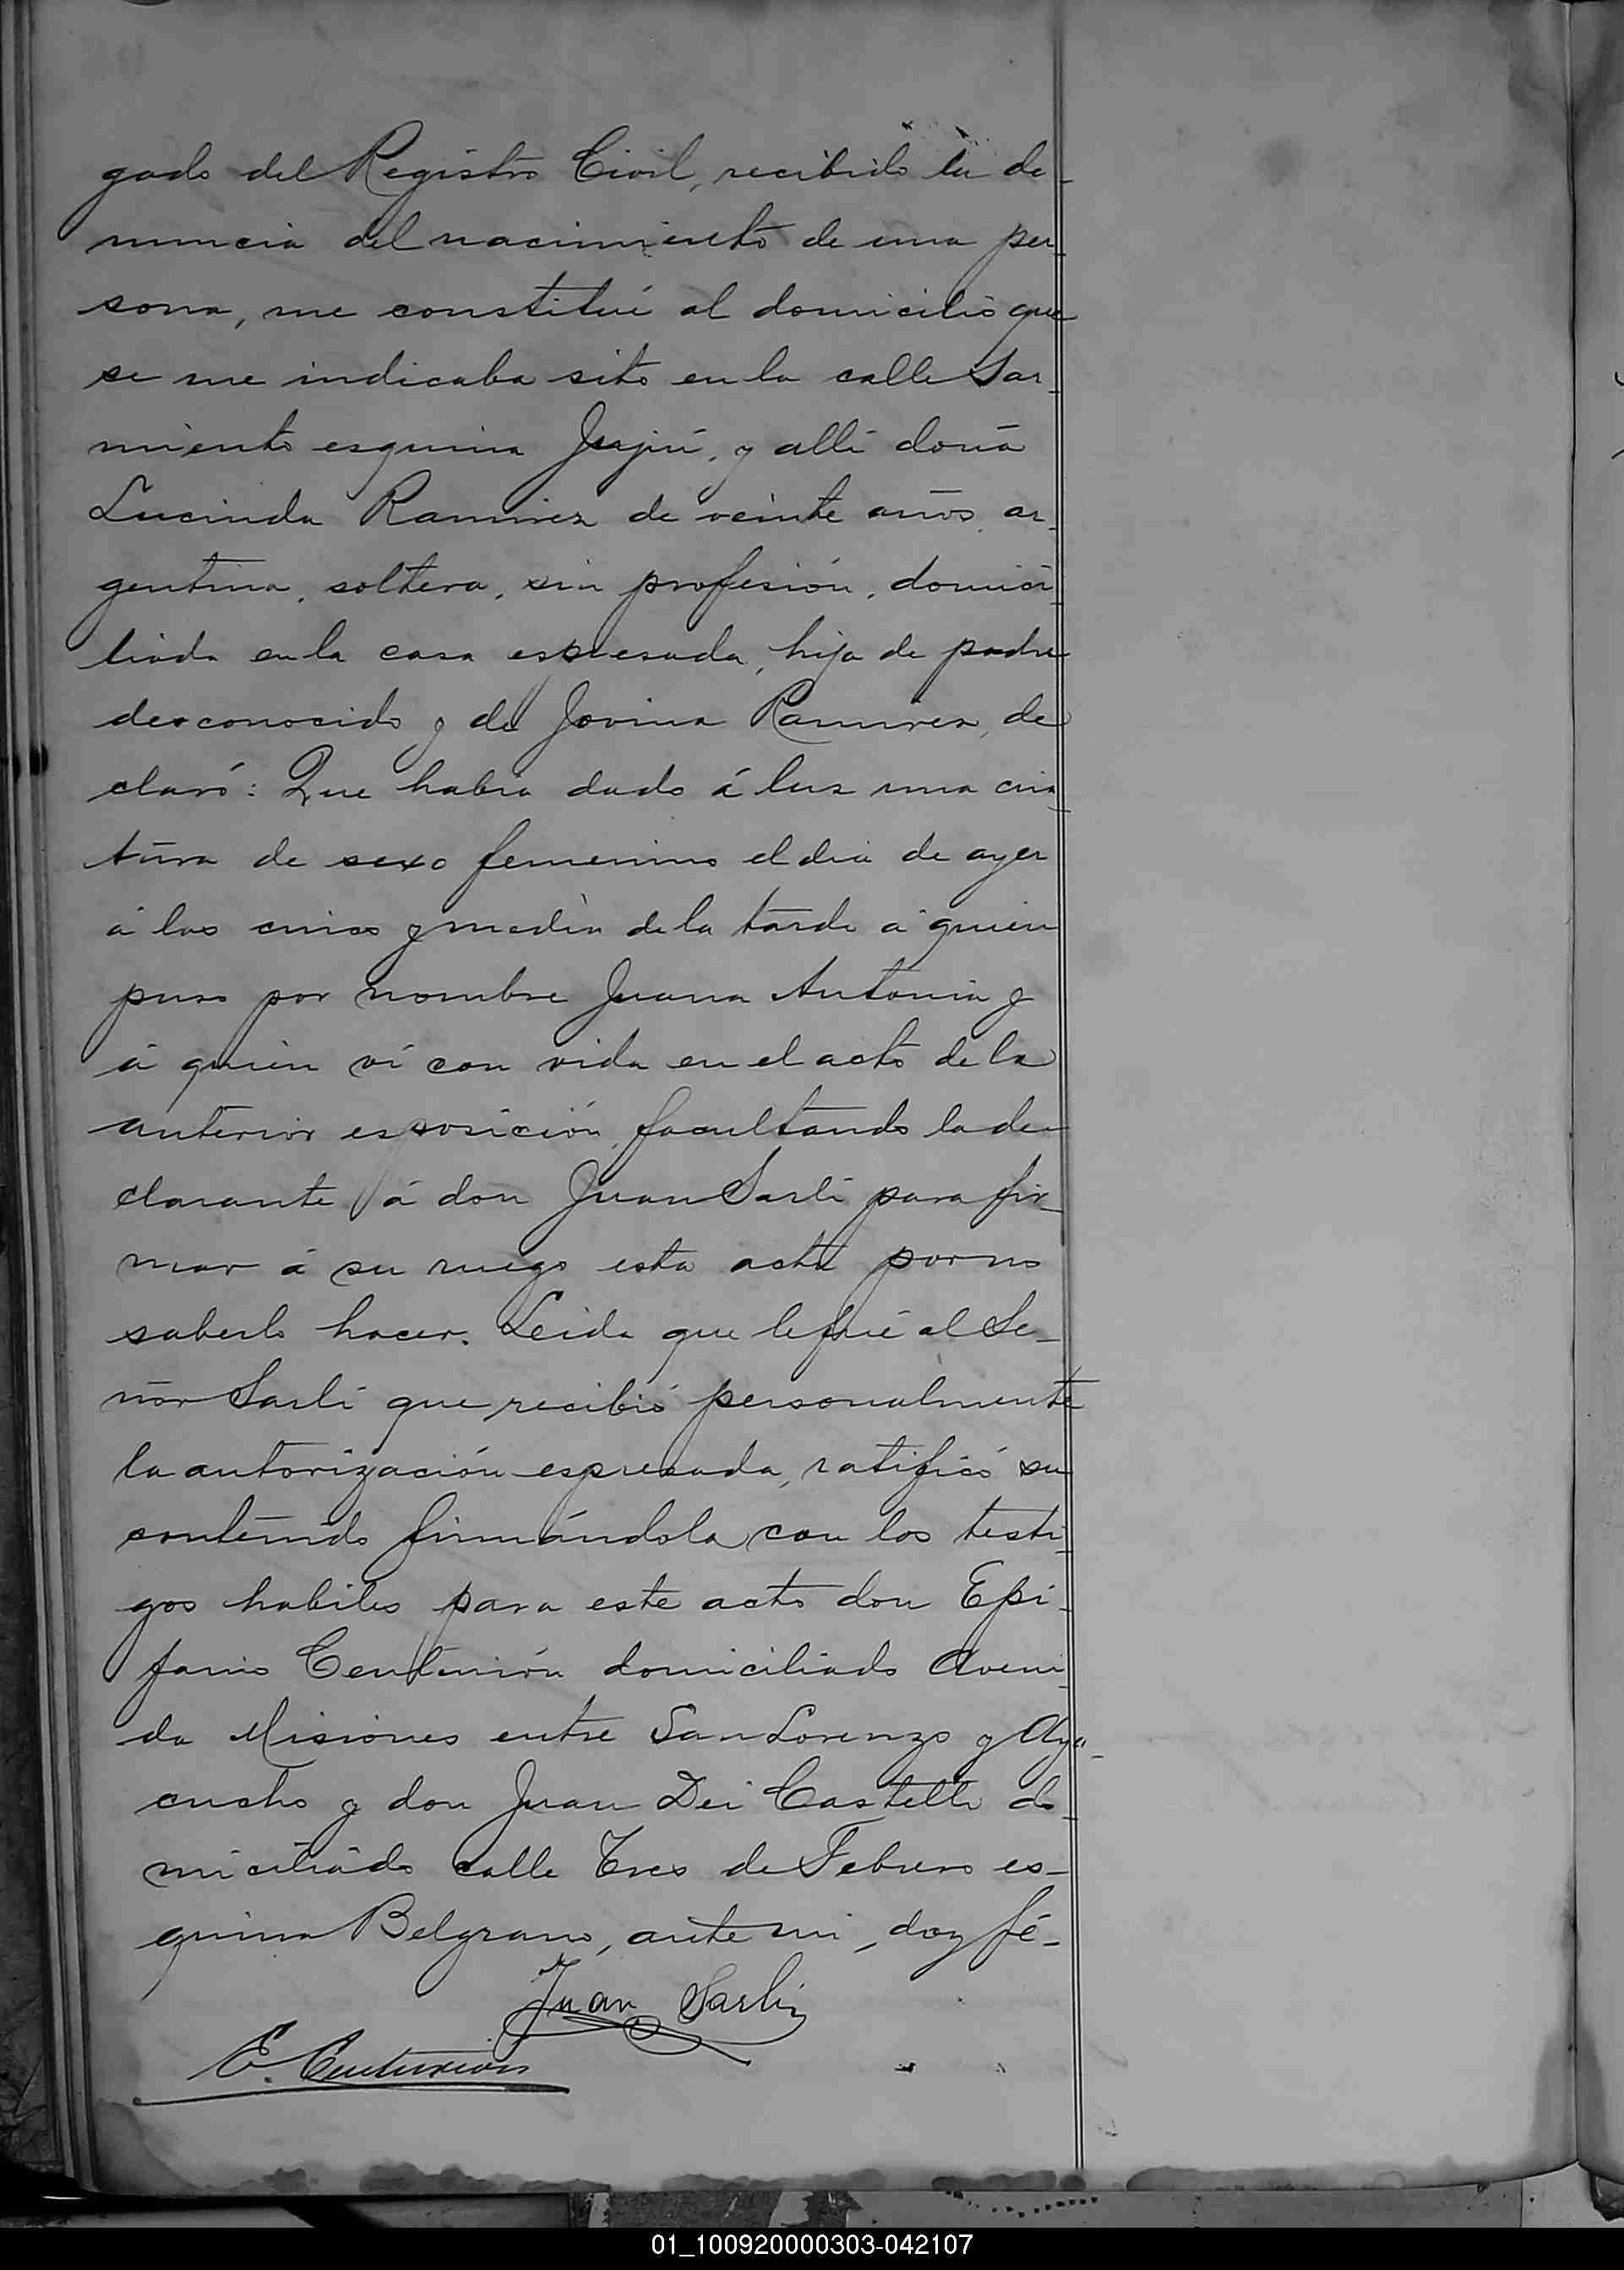 gado del Registro Civil, recibido la de-
nuncia del nacimiento de una per-
sona, me constituí al domicilio que
se me indicaba sito en la calle Sar-
miento esquina Jujuí, y allí doña
Lucinda Ramirez de veinte años, ar-
gentina, soltera, sin profesión, domici-
liada en la casa espresada, hija de padre
desconocido y de Jovina Ramirez, de
claró: Que habia dado á luz una cria-
tura de sexo femenino el dia de ayer
á las cinco y media de la tarde á quien
puso por nombre Juana Antonia y
á quien ví con vida en el acto de la
anterior esposición, facultando la de-
clarante á don Juan Sarli para fir-
mar á su ruego esta acta por no
saberlo hacer. Leida que le fué al Se-
ñor Sarli que recibió personalmente
la autorización espresada, ratificó su
contenido firmándola con los testi-
gos habiles para este acto don Epi-
fanio Centurión domiciliado Aveni-
da Misiones entre San Lorenzo y Aya-
cucho y don Juan Dei Castelli do-
miciliado calle Tres de Febrero es-
quina Belgrano, ante mi, doy fé-
Juan Sarli
E. Centurion
01_100920000303-042107